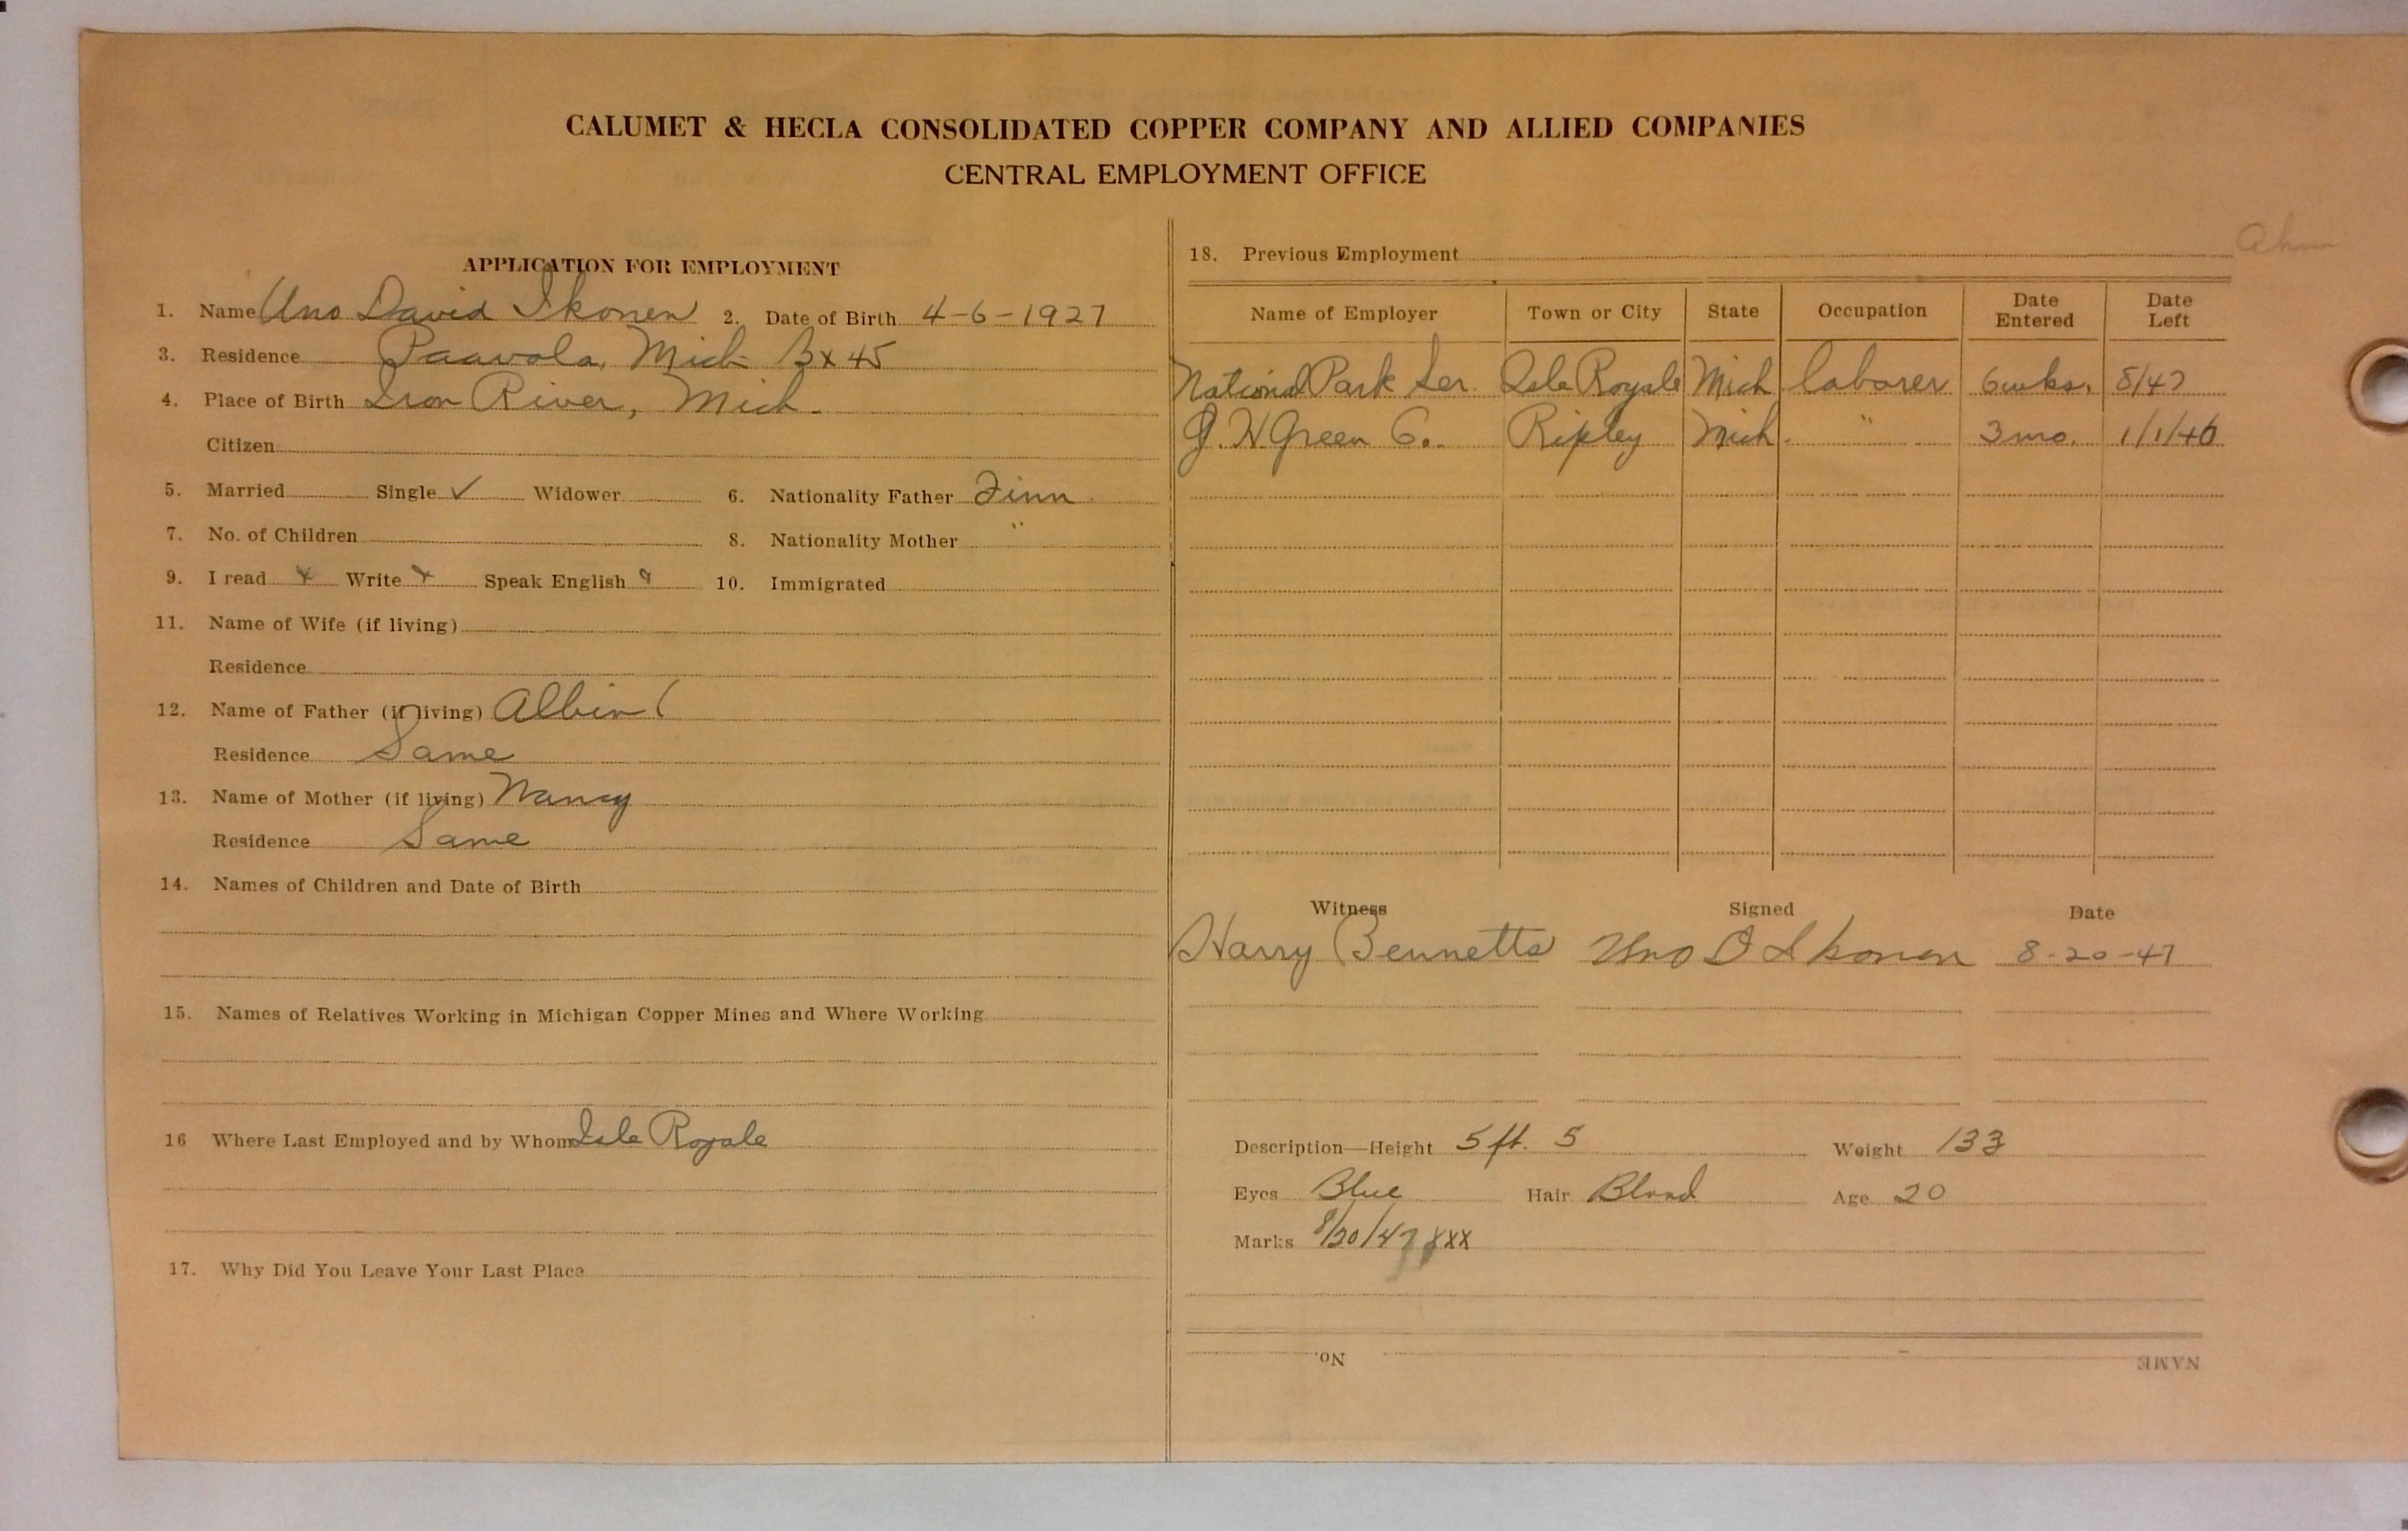 CALUMET & HECLA CONSOLIDATED COPPER COMPANY AND ALLIED COMPANIES
CENTRAL EMPLOYMENT OFFICE
APPLICATION FOR EMPLOYMENT
1. Name Uno David Ikonen 2. Date of Birth 4-6-1927
3. Residence Paavola, Mich Bx 45
4. Place of Birth Iron River, Mich.
Citizen
5. Married Single ✓ Widower 6. Nationality Father Finn
7. No. of Children 8. Nationality Mother "
9. I read x Write x Speak English 10. Immigrated
11. Name of Wife (if living)
Residence
12. Name of Father (if living) Albin (
Residence Same
13. Name of Mother (if living) Nancy
Residence Same
14. Names of Children and Date of Birth
15. Names of Relatives Working in Michigan Copper Mines and Where Working
16 Where Last Employed and by Whom Isle Royale
17. Why Did You Leave Your Last Place
18. Previous Employment
Name of Employer Town or City State Occupation Date Entered Date Left
National Park Ser. Isle Royale Mich laborer 6 wks. 8/47
J. H Green Co. Ripley Mich. " 3 mo. 1/1/46
Witness Signed Date
Harry Bennetts Uno D Ikonen 8-20-47
Description—Height 5 ft. 5 Weight 133
Eyes Blue Hair Blond Age 20
Marks 8/20/47 XXX
No. NAME